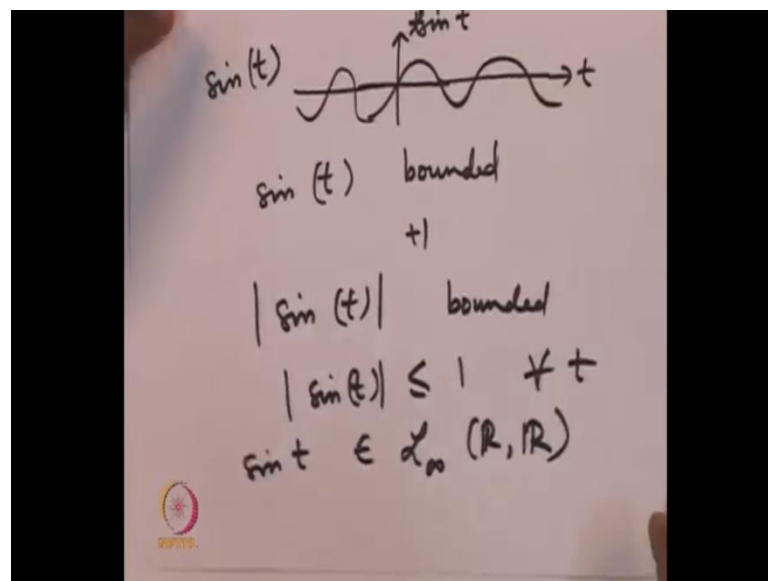 sin t
sin(t) t
sin (t) bounded
+1
| sin (t)| bounded
| sin(t)| ≤ 1 ∀ t
sin t ∈ ℒ∞ (ℝ, ℝ)
NPTEL